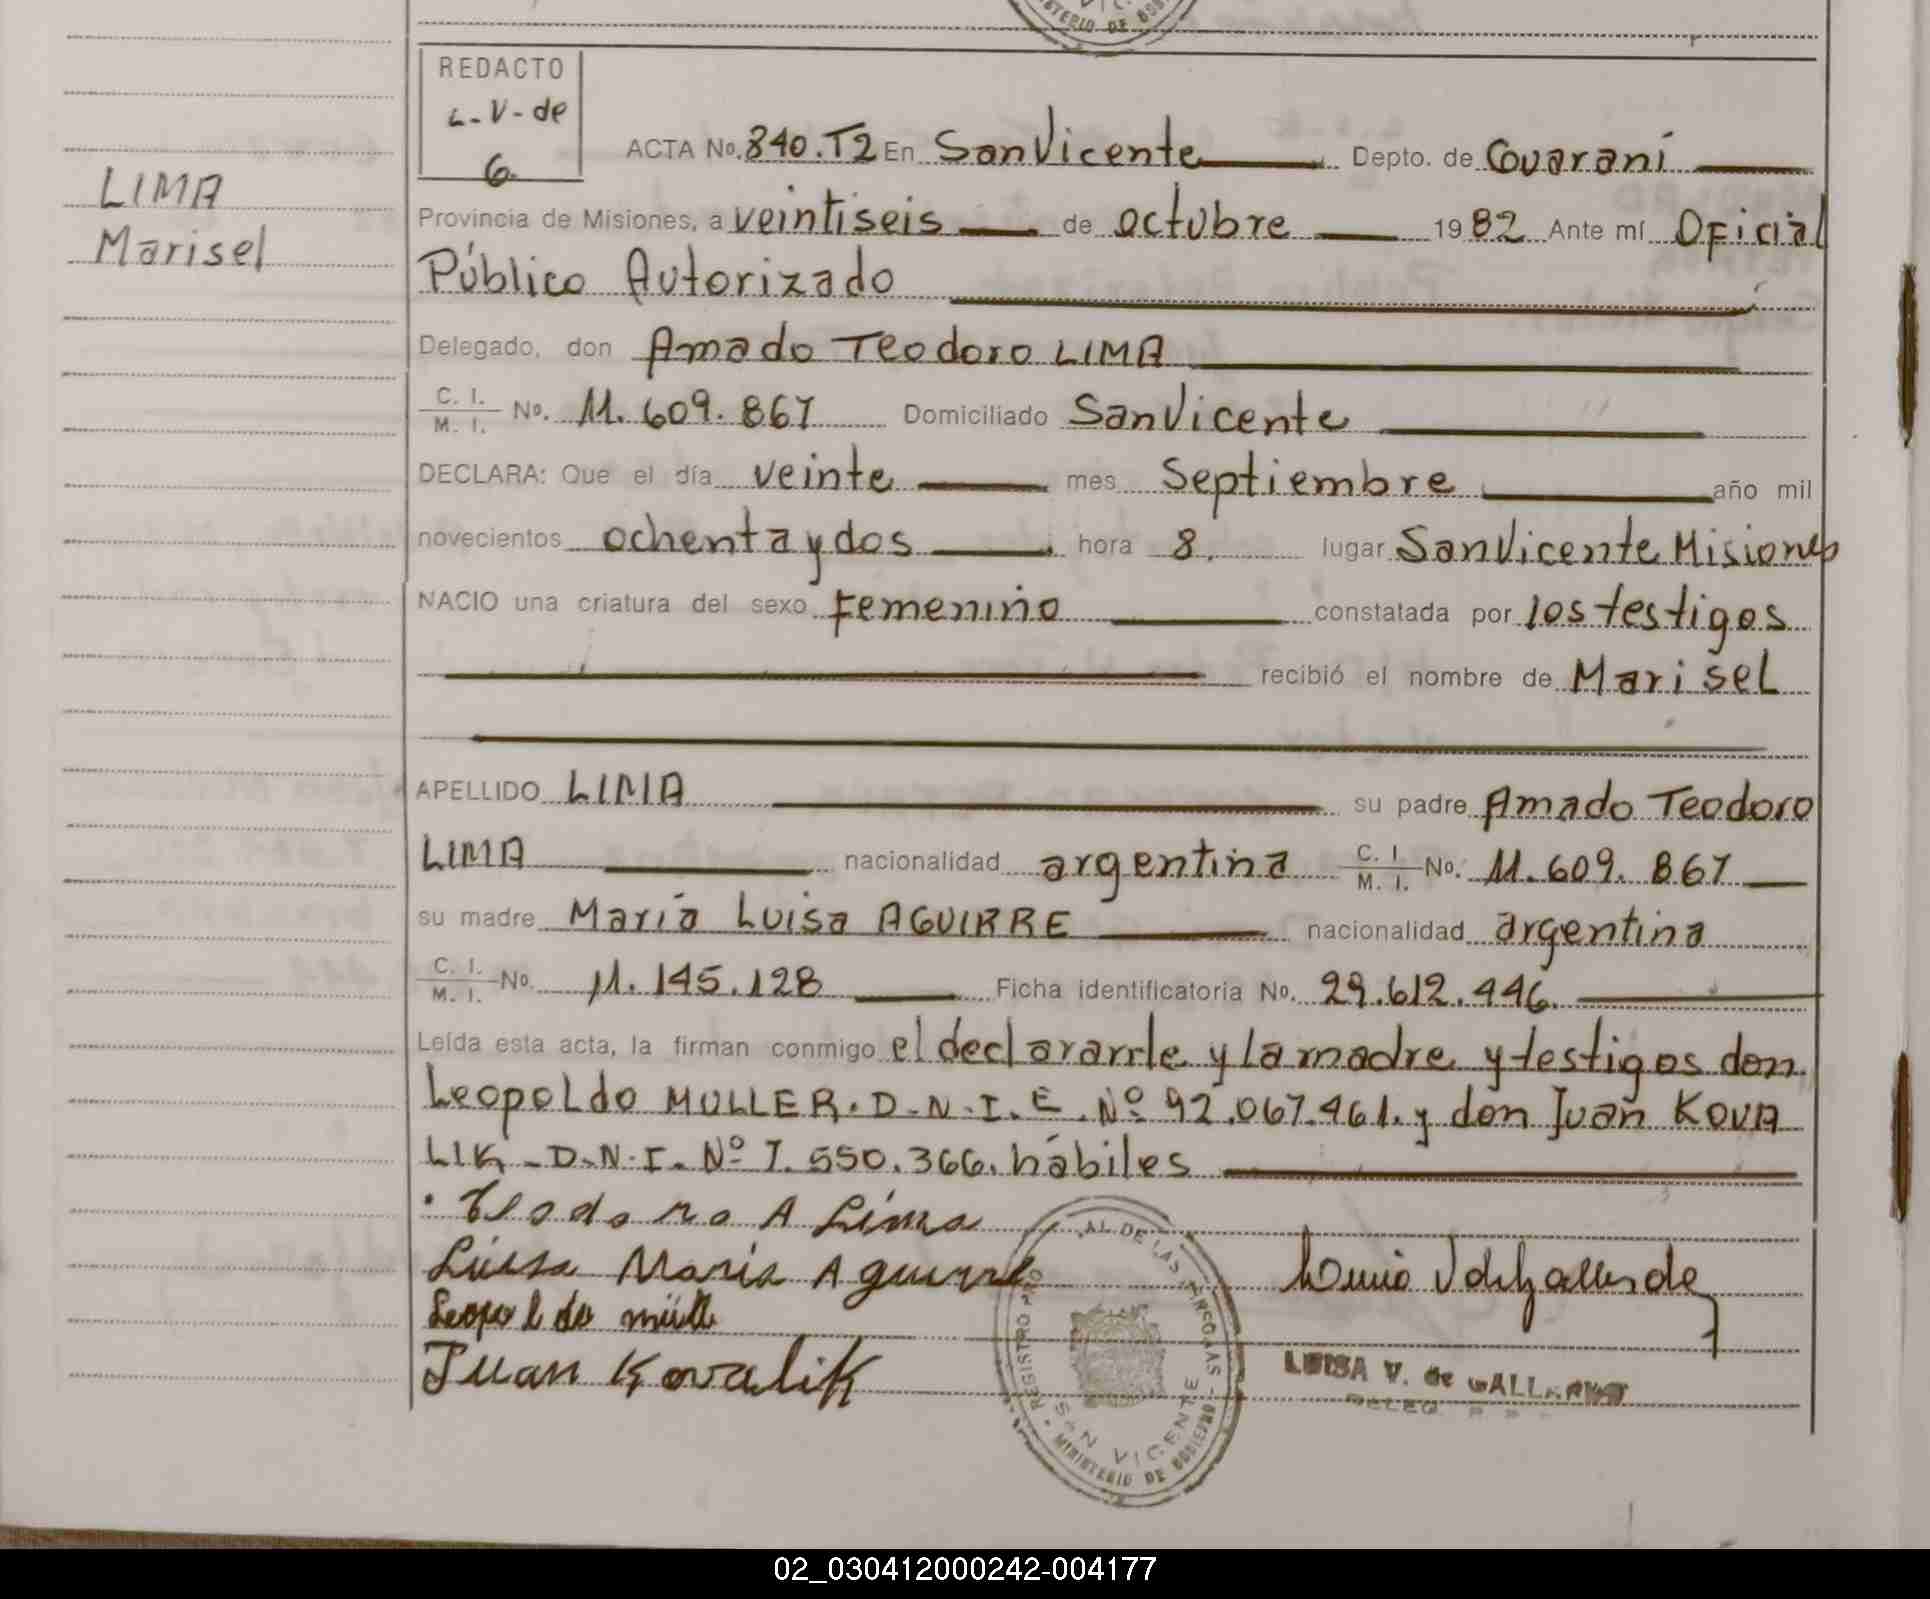 REDACTO
L-V-de
G.
LIMA
Marisel
ACTA No. 840.T2 En San Vicente Depto. de Guaraní
Provincia de Misiones, a veintiseis de octubre 1982 Ante mí Oficial
Público Autorizado
Delegado, don Amado Teodoro LIMA
C. I. / M. I. No. 11.609.867 Domiciliado San Vicente
DECLARA: Que el día veinte mes Septiembre año mil
novecientos ochenta y dos hora 8. lugar San Vicente Misiones
NACIO una criatura del sexo Femenino constatada por los testigos
recibió el nombre de Marisel
APELLIDO LIMA su padre Amado Teodoro
LIMA nacionalidad argentina C. I. / M. I. No. 11.609.867
su madre María Luisa AGUIRRE nacionalidad argentina
C. I. / M. I. No. 11.145.128 Ficha identificatoria No. 29.612.446.
Leída esta acta, la firman conmigo el declarante y la madre y testigos don
Leopoldo MULLER. D.N.I.E. Nº 92.067.461. y don Juan KOVA
LIK - D.N.I. Nº 7.550.366. hábiles
Teodoro A Lima
Luisa María Aguirre
Leopoldo müll
Juan Kovalik
REGISTRO
AL DE LAS
SAN VICENTE
MINISTERIO DE GOBIERNO
LUISA V. de GALLARDO
02_030412000242-004177